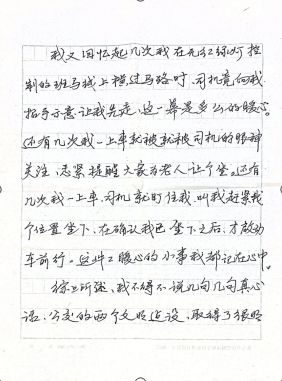 我又回忆起几次我在无红绿灯控
制的斑马线上横过马路时，司机竟向我
招手示意让我先走，这一幕是多么的暖心。
还有几次我一上车就被就被司机的眼神
关注，忙提醒大家为老人让个坐。还有
几次我一上车，司机就盯住我，叫我赶紧找
个位置坐下，在确认我已坐下之后，才启动
车前行。这件件暖心的小事我都记在心中。
综上所述，我不得不说几句几句真心
话，公交的两个文明建设，取得了很好